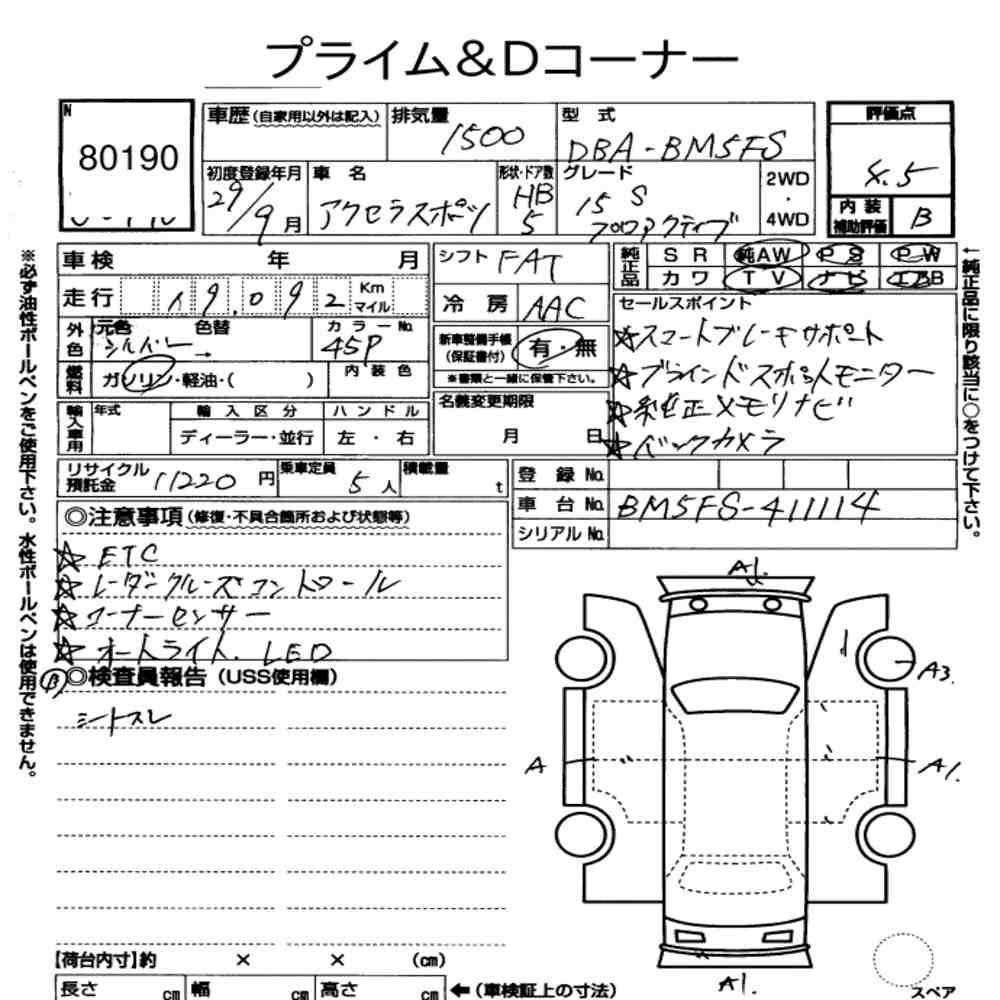 プライム＆Dコーナー
N
80190
車歴(自家用以外は記入)
排気量
1500
型 式
DBA-BM5FS
評価点
4.5
初度登録年月
29/9月
車 名
アクセラスポーツ
形状・ドア数
HB
5
グレード
15 S
プロアクティブ
2WD
・
4WD
内 装
補助評価
B
※必ず油性ボールペンをご使用下さい。水性ボールペンは使用できません。
車検 年 月
シフト FAT
純正品
S R 純AW P S P W
カワ T V ナビ エアB
走行 19.092 Km マイル
冷 房 AAC
セールスポイント
外色
元色
シルバー →
色替
カラーNo.
45P
新車整備手帳
(保証書付)
有・無
※書類と一緒に保管下さい。
☆スマートブレーキサポート
☆ブラインドスポットモニター
☆純正メモリナビ
☆バックカメラ
燃料
ガソリン・軽油・( )
内 装 色
名義変更期限
月 日
輸入車用
年式
輸 入 区 分
ディーラー・並行
ハ ン ド ル
左 ・ 右
←純正品に限り該当に○をつけて下さい。
リサイクル
預託金
11220 円
乗車定員
5 人
積載量
t
登 録 No.
車 台 No. BM5FS-411114
シリアル No.
◎注意事項(修復・不具合箇所および状態等)
☆ ETC
☆ レーダークルーズコントロール
☆ コーナーセンサー
☆ オートライト. LED
B ◎検査員報告(USS使用欄)
シートスレ
A1.
A3.
A
A1.
A1.
スペア
【荷台内寸】約 × × (cm)
長さ cm 幅 cm 高さ cm ←(車検証上の寸法)